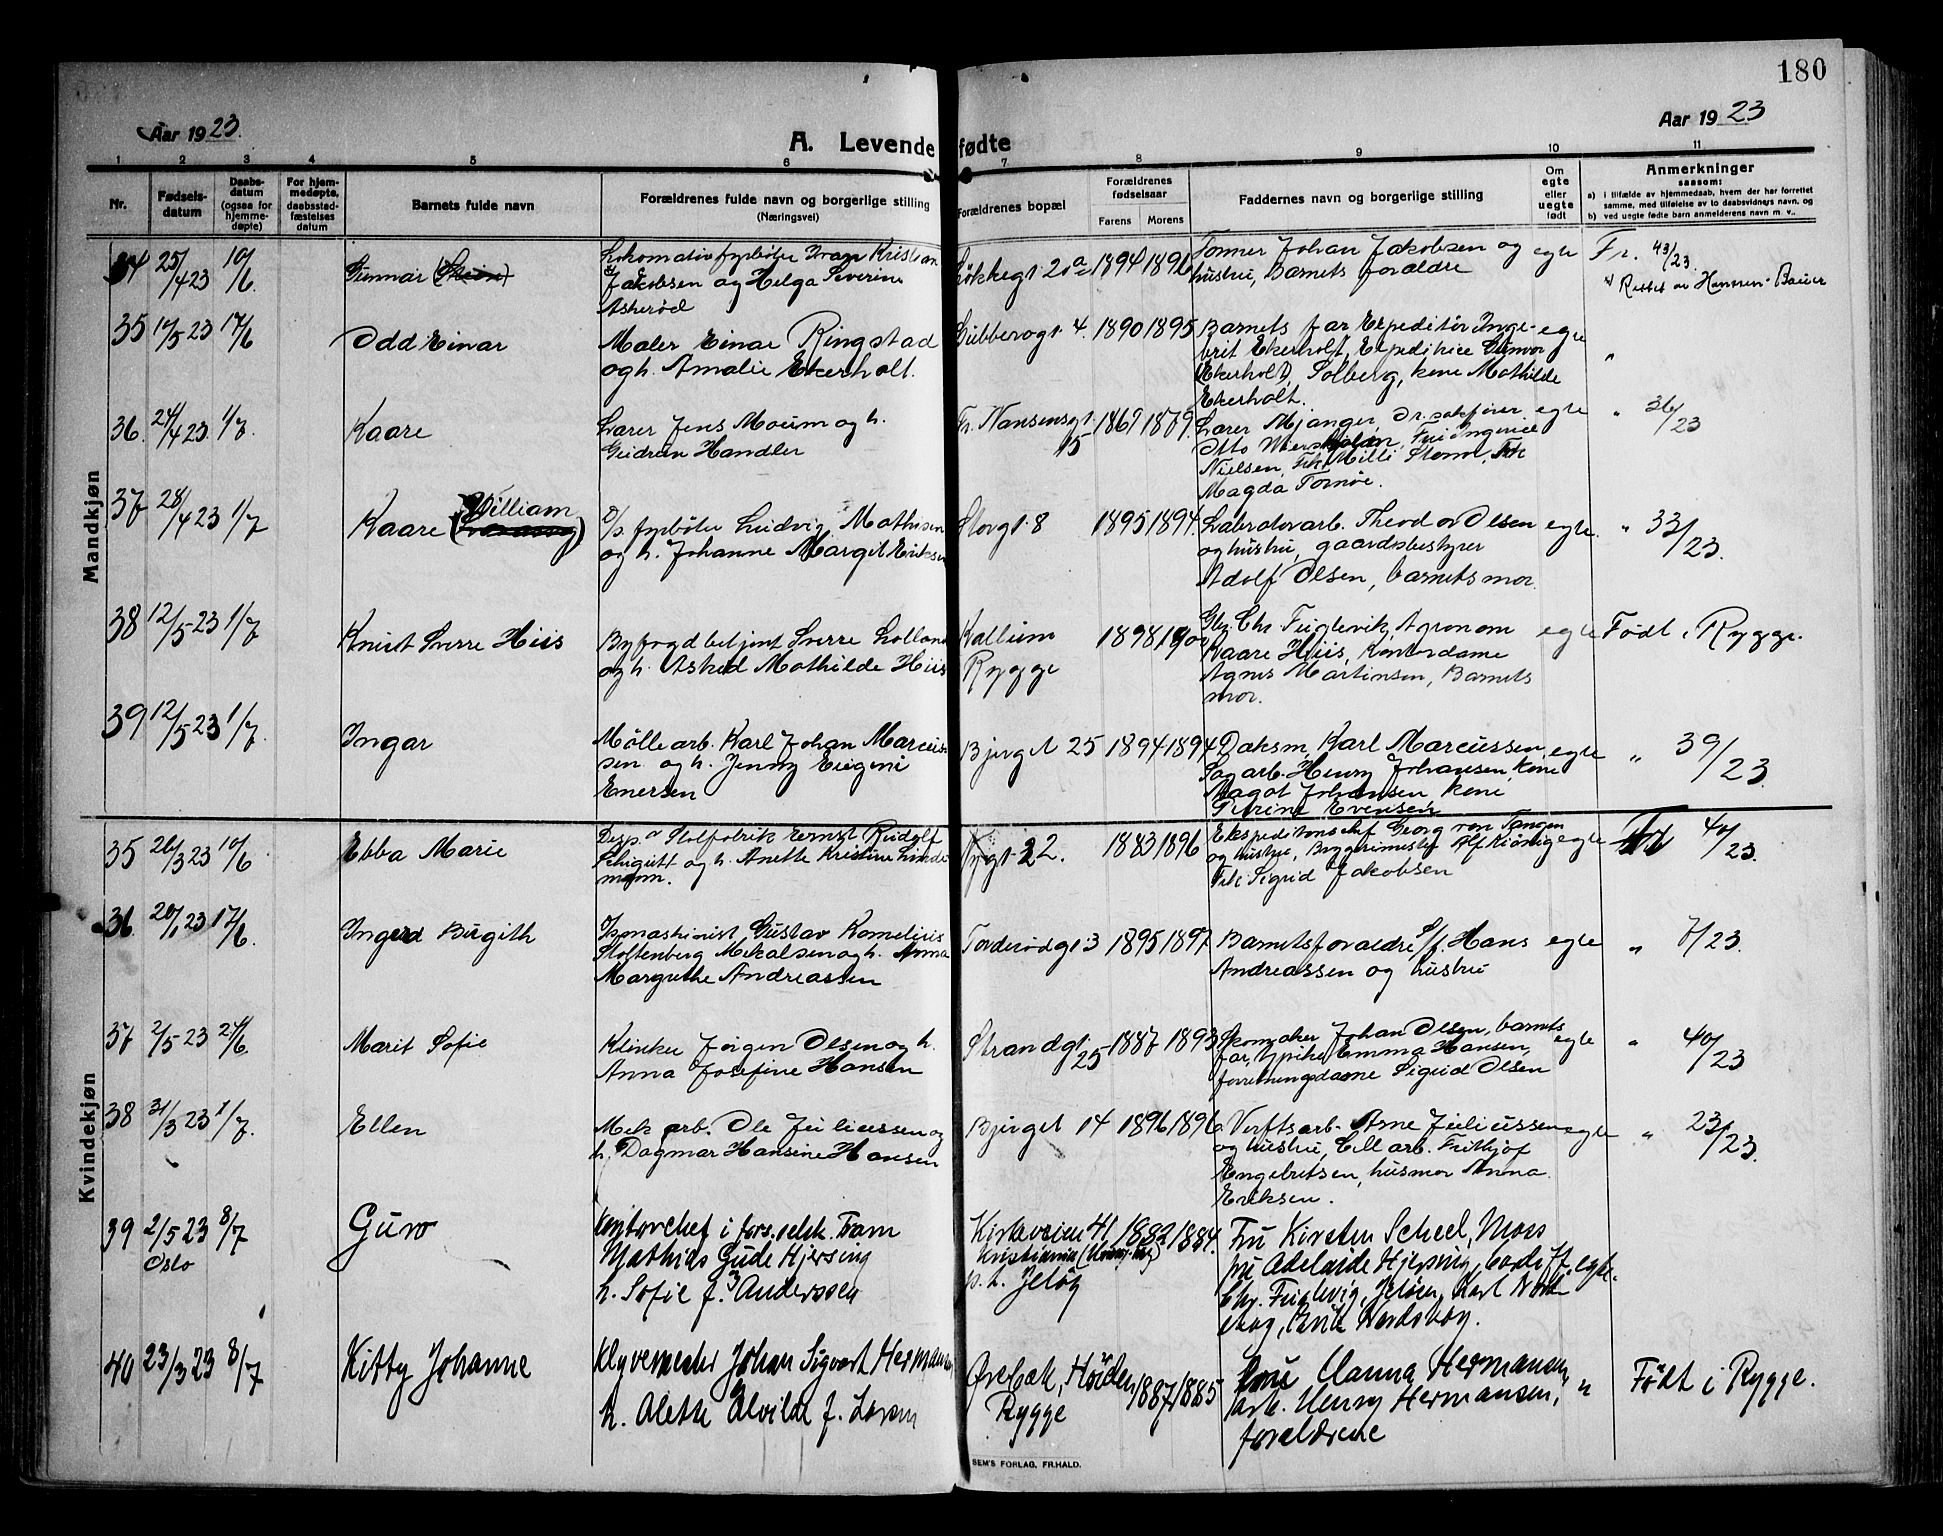 180
Aar 1923.
Aar 1923
A. Levende fødte
1 2 3 4 5 6 7 8 9 10 11
Nr.
Fødsels-
datum
Daabs-
datum
(ogsaa for
hjemme-
døpte)
For hjem-
medøpte,
daabsstad-
fæstelses
datum
Barnets fulde navn
Forældrenes fulde navn og borgerlige stilling
(Næringsvei)
Forældrenes bopæl
Forældrenes
fødselsaar
Farens Morens
Faddernes navn og borgerlige stilling
Om
egte
eller
uegte
født
Anmerkninger
saasom:
a) i tilfælde av hjemmedaab, hvem der har forrettet
samme, med tilføielse av to daabsvidners navn, og
b) ved uegte fødte barn anmelderens navn m. v..
Mandkjøn
34 25/4 23 10/6
Gunnar
Lokomotivfyrbøter Ivan Kristian
Jakobsen og Helga Severine
Askerød
Løkkegt 20a 1894 1896
Former Johan Jakobsen og
hustru, Barnets forældre
egte
Fr. 43/23
Rettet av Hanssen-Bauer
35 10/5 23 17/6
Odd Einar
Maler Einar Ringstad
og h. Amalie Ekerholt.
Gubberogt. 4. 1890 1895
Barnets far Expeditør Inge-
brit Ekerholt, Expeditrice Gunvor
(Ekerholt) Solberg, kone Mathilde
Ekerholt.
egte "
36. 24/4 23. 1/7.
Kaare
Lærer Jens Moum og h.
Gudrun Handler
Fr. Nansensgt. 15 1869 1879.
Lærer Mjanger, Dr. sakfører
Otto Fru Ingerid
Nielsen, Frk Milli Frk
Magda Tornøe.
egte " 36/23
37 28/4 23 1/7
Kaare William
D/s. fyrbøter Ludvig Mathisen
og h. Johanne Margit Eriksen
Storgt. 8 1895 1894.
Labratorarb. Theodor Olsen
og hustru, gaardsbestyrer
Adolf Olsen, barnets mor.
egte. " 33/23.
38 12/5 23 1/7
Knut Sverre Hiis
Byfogdbetjent Sverre Lolland
og h. Astrid Mathilde Hiis
Kallum
Rygge
1898 1900
Chr Fuglevik, Agronom
Kaare Hiis, Kontordame
Agnes Martinsen, Barnets
mor.
egte Født i Rygge.
39 12/5 23 1/7
Ingar
Møllearb. Karl Johan Marcus-
sen og h. Jenny Eugenie
Enersen
Bjergt 25 1894 1894
Daksm. Karl Marcussen,
Sagarb. Henry Johansen, kone
Magot Johansen kone
Petrine Evensen
egte " 39/23.
Kvindekjøn
35 26/3 23 10/6
Ebba Marie
Disp. v Stolfabrik Ernst Rudolf
og h. Anette Kristine Linde-
mann.
22. 1883 1896
Ekspeditionschef Georg von Tangen
og hustru, Byggmester Alf
Frk Sigrid Jakobsen
egte Fr 40/23.
36. 20/1 23 17/6.
Ingerd Birgith
Gustav Kornelius
Stoltenberg Mikalsen og h. Anna
Margrethe Andreassen
Torderødgt 3 1895 1897
Barnets forældre S/f Hans
Andreassen og hustru
egte " 7/23.
37 2/5 23 24/6.
Marit Sofie
Klinker Jørgen Olsen og h.
Anna Josefine Hansen
Strandgt. 25 1887 1893
Skomaker Johan Olsen, barnets
far, pike Emma Hansen,
forretningsdame Sigrid Olsen
egte " 40/23
38 31/3 23 1/7.
Ellen
Mek arb. Ole Juliussen og
h. Dagmar Hansine Hansen
Bjergt 14 1896 1896
Verftsarb. Arne Juliussen
og hustru, Cell arb. Frithjof
Engebritsen, husmor Anna
Eriksen.
egte " 23/23.
39 2/5 23 8/7
Oslo
Guro
Kontorchef i fors.selsk. Fram
Mathias Gude Hjersing
h. Sofie f. Anderssen
Kirkeveien 41,
Kristiania
p.t. Jeløy
1882 1884.
Fru Kirsten Scheel, Moss
fru Adelaide Hjersing,
Chr. Fuglevig, Jeløen, Karl
skog, Erik Nordskog.
egte.
40 23/3 23 8/7
Kitty Johanne
Klyvemester Johan Sigvart Hermansen
h. Alette Alvilde f. Larsen
Ørebæk, Høiden
Rygge
1887 1885
Hanna Hermansen,
arb. Henry Hermansen,
forældrene
" Født i Rygge.
SEM'S FORLAG, FR.HALD.